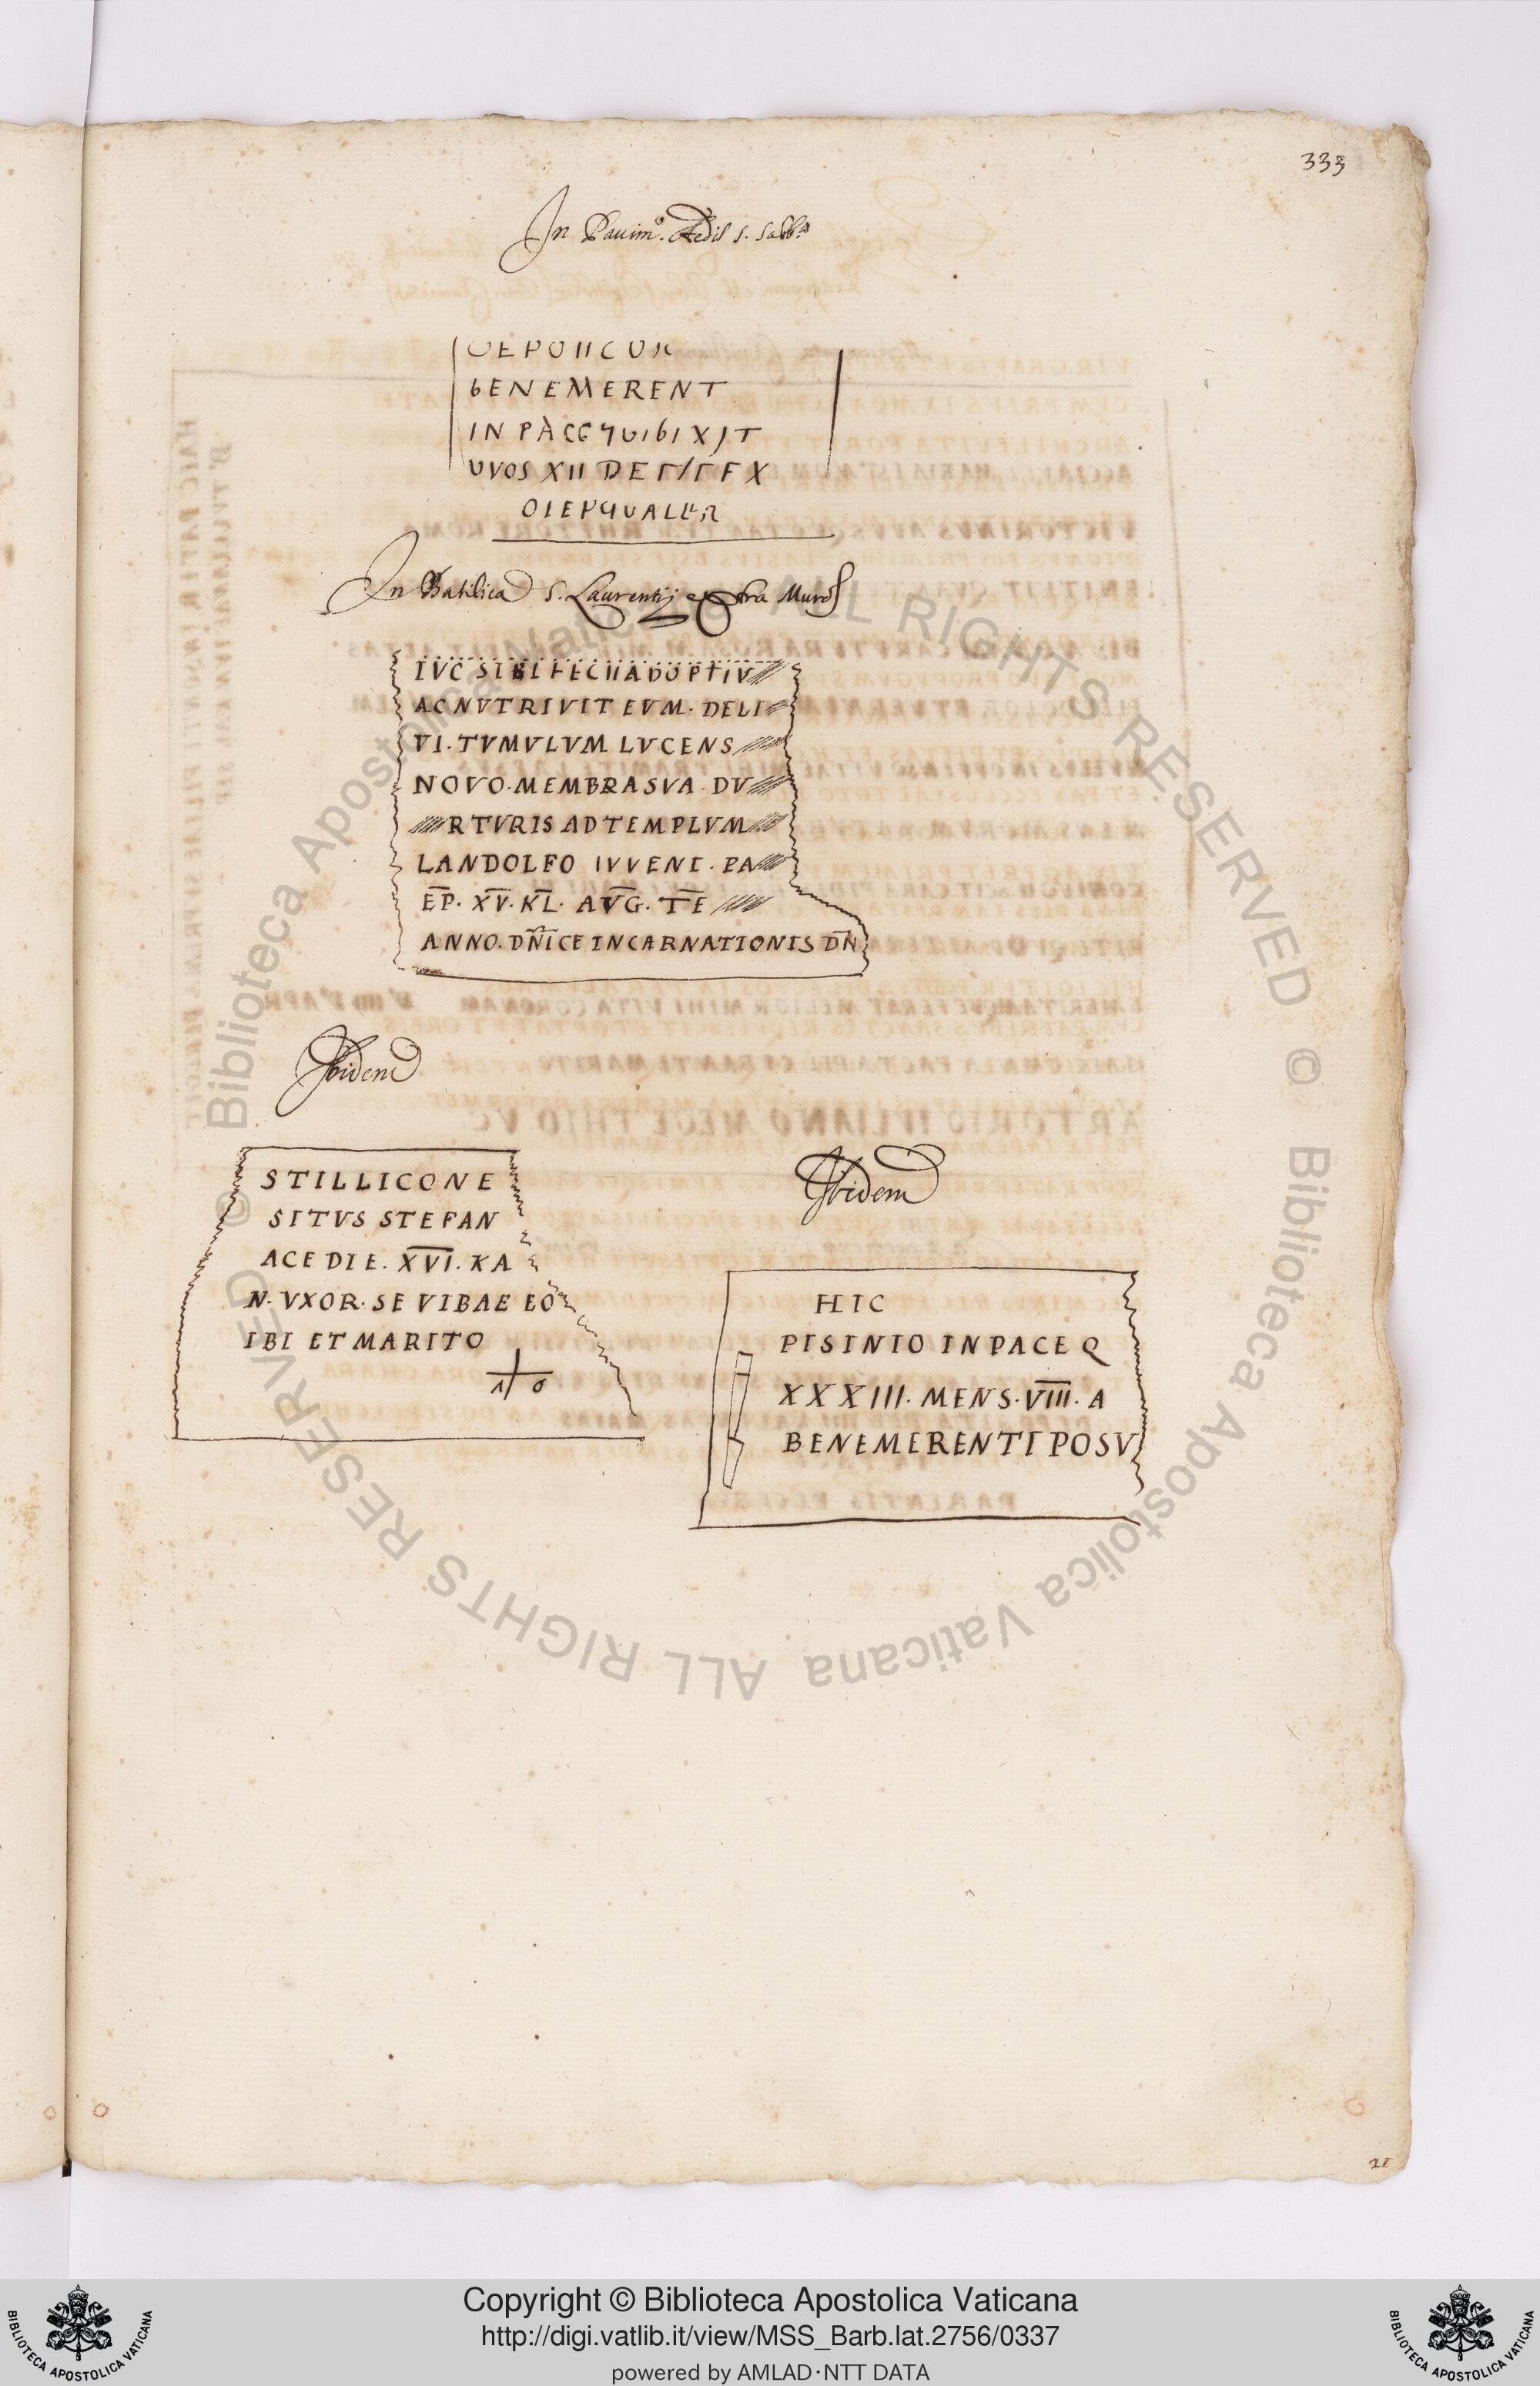 333
In Pauim.° Aedis S. Sabb.ᵃ
bENEMERENT
IN PACE
In Basilica S. Laurentij extra Muros
IVC SIBI FECIT ADOPTIV
AC NVTRIVIT EVM. DELI
VI. TVMVLVM LVCENS
NOVO. MEMBRA SVA. DV
RTVRIS AD TEMPLVM
LANDOLFO IVVENI. PA
EP. XV. KL. AVG. TE
ANNO. DNICE INCARNATIONIS DN
Ibidem
STILLICONE
SITVS STEFAN
ACE DIE. XVI. KA
N. VXOR. SE VIBAE EO
IBI ET MARITO
Ibidem
HIC
PISINIO IN PACE Q
XXXIII. MENS. VIII. A
BENEMERENTI POSV
21
© Biblioteca Apostolica Vaticana ALL RIGHTS RESERVED © Biblioteca Apostolica Vaticana ALL RIGHTS RESERVED
BIBLIOTECA APOSTOLICA VATICANA
Copyright © Biblioteca Apostolica Vaticana
http://digi.vatlib.it/view/MSS_Barb.lat.2756/0337
powered by AMLAD·NTT DATA
BIBLIOTECA APOSTOLICA VATICANA